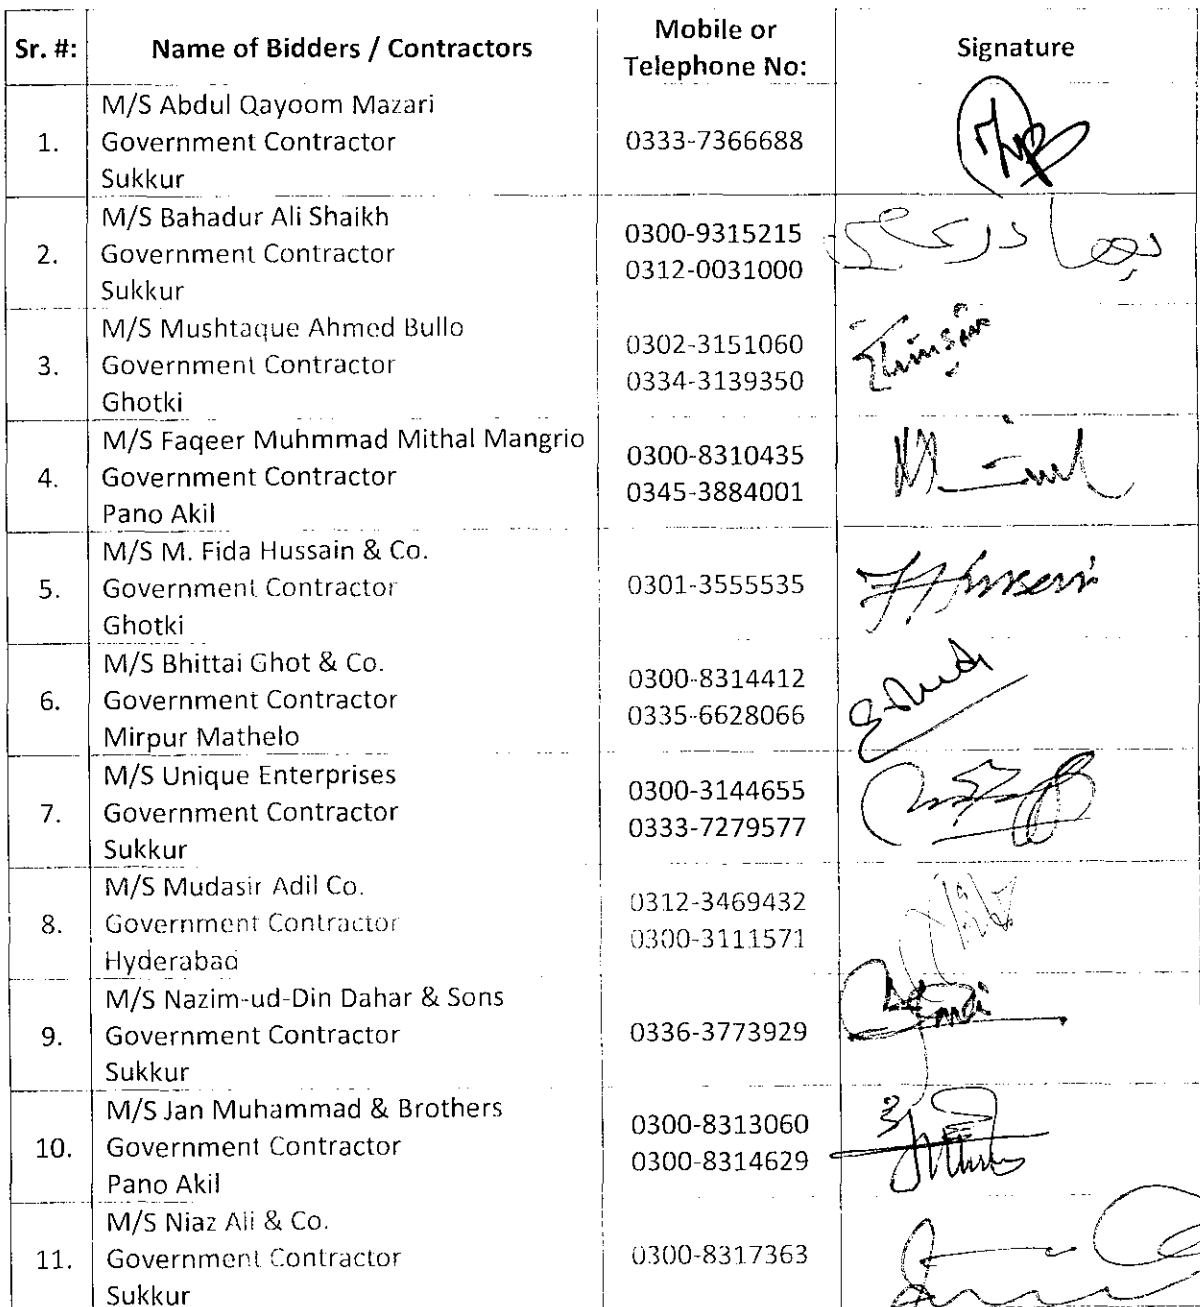 Sr. #: Name of Bidders / Contractors Mobile or Telephone No: Signature
1. M/S Abdul Qayoom Mazari
Government Contractor
Sukkur
0333-7366688
2. M/S Bahadur Ali Shaikh
Government Contractor
Sukkur
0300-9315215
0312-0031000
3. M/S Mushtaque Ahmed Bullo
Government Contractor
Ghotki
0302-3151060
0334-3139350
4. M/S Faqeer Muhmmad Mithal Mangrio
Government Contractor
Pano Akil
0300-8310435
0345-3884001
5. M/S M. Fida Hussain & Co.
Government Contractor
Ghotki
0301-3555535
6. M/S Bhittai Ghot & Co.
Government Contractor
Mirpur Mathelo
0300-8314412
0335-6628066
7. M/S Unique Enterprises
Government Contractor
Sukkur
0300-3144655
0333-7279577
8. M/S Mudasir Adil Co.
Government Contractor
Hyderabad
0312-3469432
0300-3111571
9. M/S Nazim-ud-Din Dahar & Sons
Government Contractor
Sukkur
0336-3773929
10. M/S Jan Muhammad & Brothers
Government Contractor
Pano Akil
0300-8313060
0300-8314629
11. M/S Niaz Ali & Co.
Government Contractor
Sukkur
0300-8317363